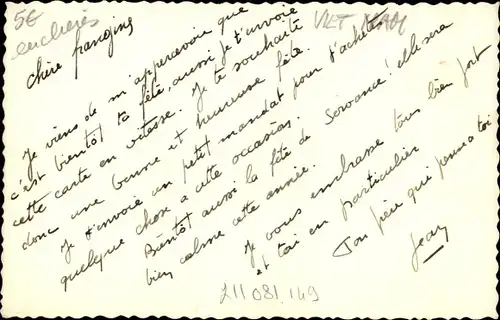 5€
enchères
VIET NAM
Chère frangine
Je viens de m'appercevoir que
c'est bientôt ta fête, aussi je t'envoie
cette carte en vitesse. Je te souhaite
donc une bonne et heureuse fête.
Je t'envoie un petit mandat pour t'acheter
quelque chose a cette occasion.
Bientôt aussi la fête de elle sera
bien calme cette année.
Je vous embrasse tous bien fort
et toi en particulier
Ton frère qui pense a toi
Jean
211 081 149